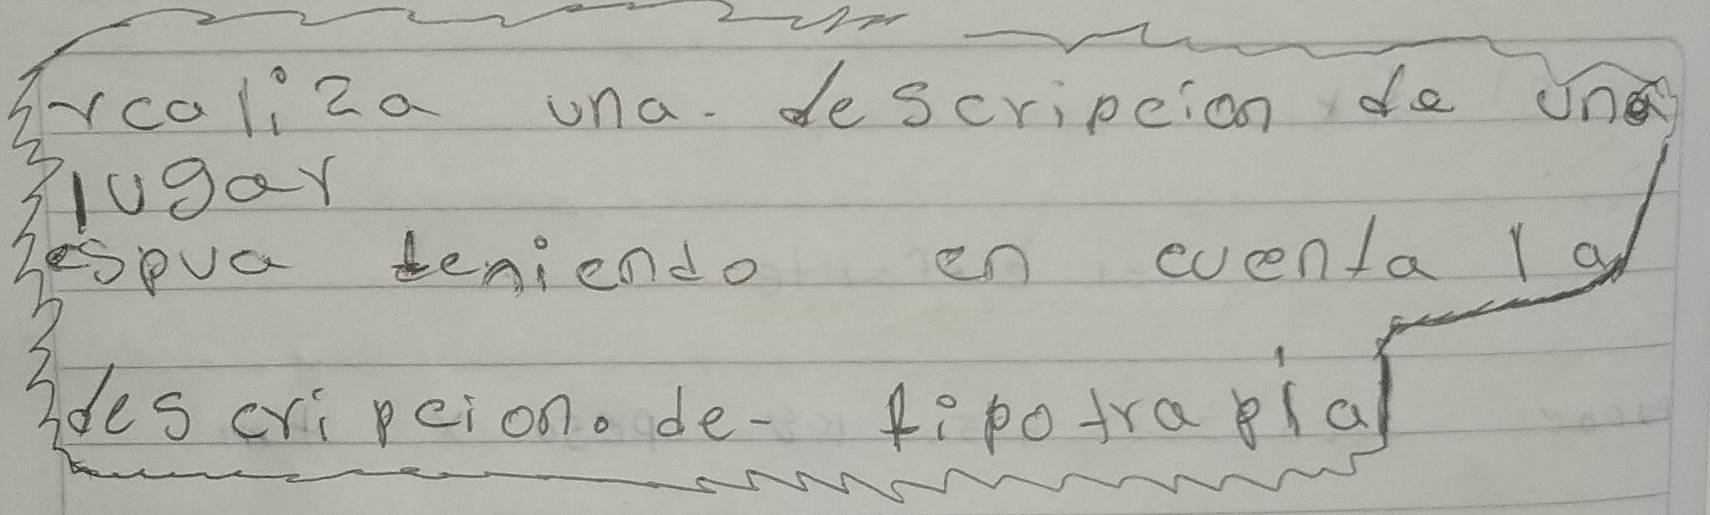 realiza una. descripcion de una
lugar
espua teniendo en cuenta la
descripcion. de- tipotrapia